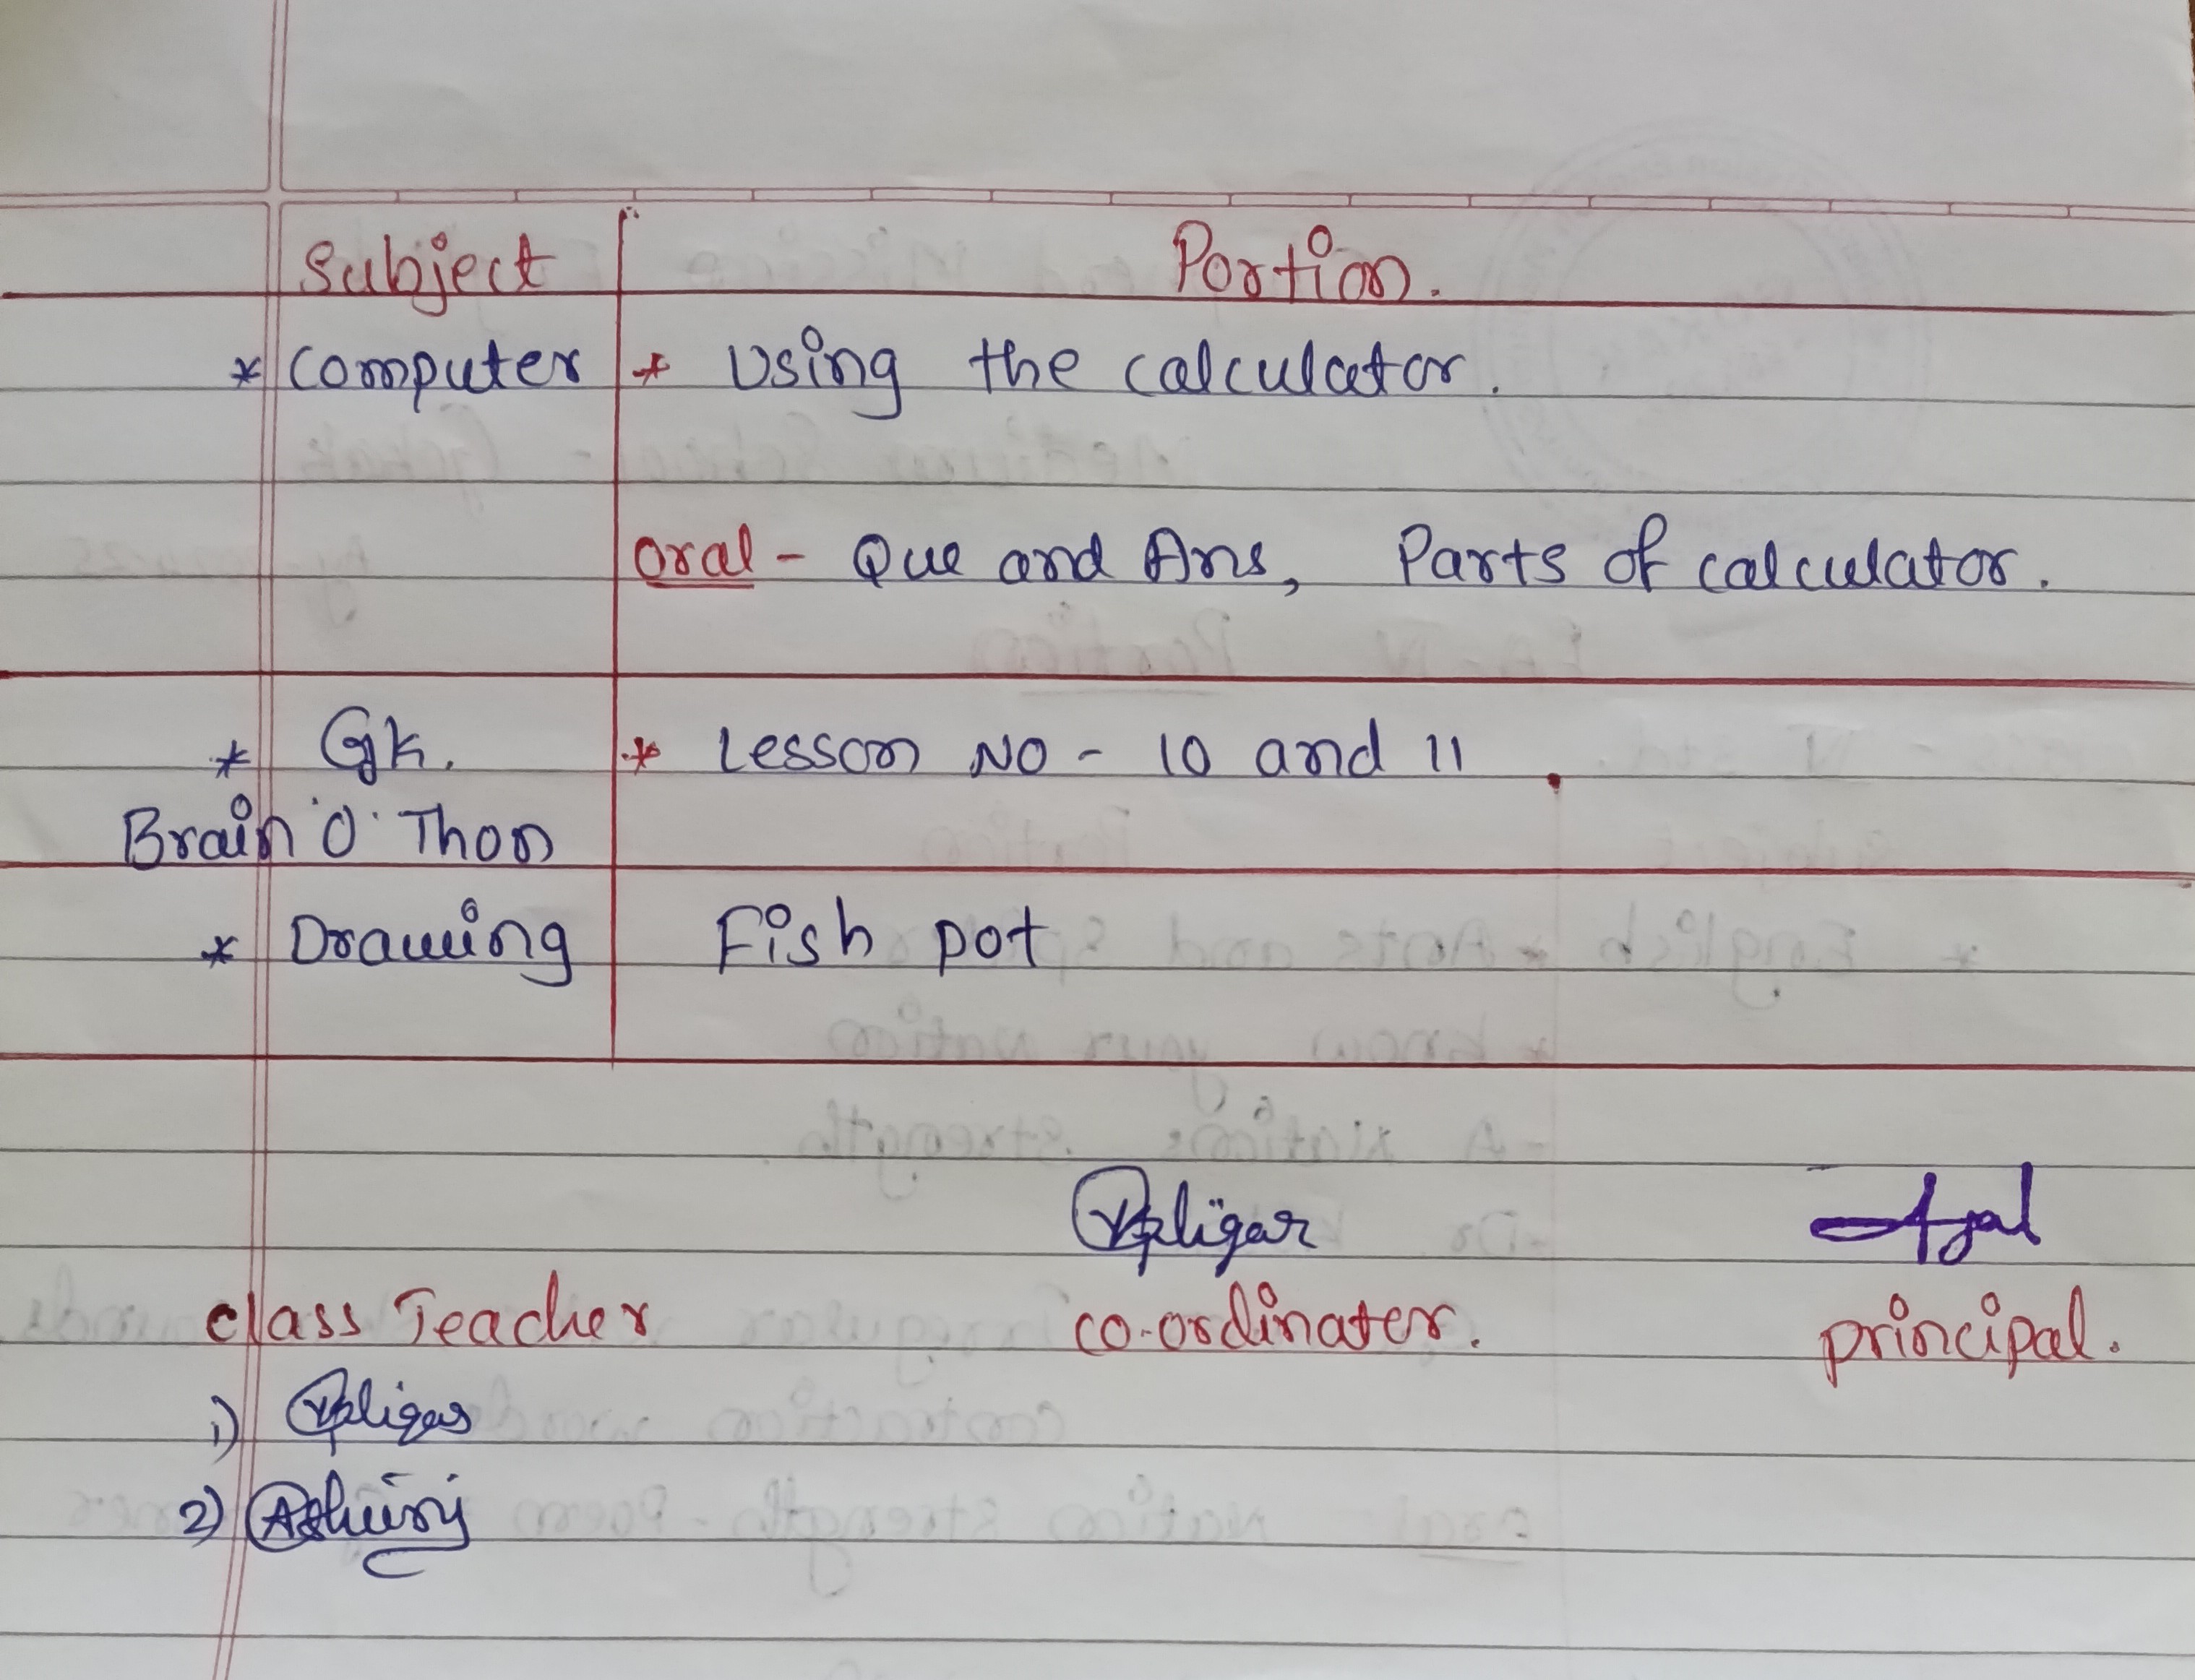 Subject Portion.
* Computer * Using the calculator.
Oral - Que and Ans, Parts of calculator.
* Gk. * Lesson No - 10 and 11.
Brain 'O' Thon
* Drawing Fish pot
class Teacher co-ordinater. principal.
1)
2)